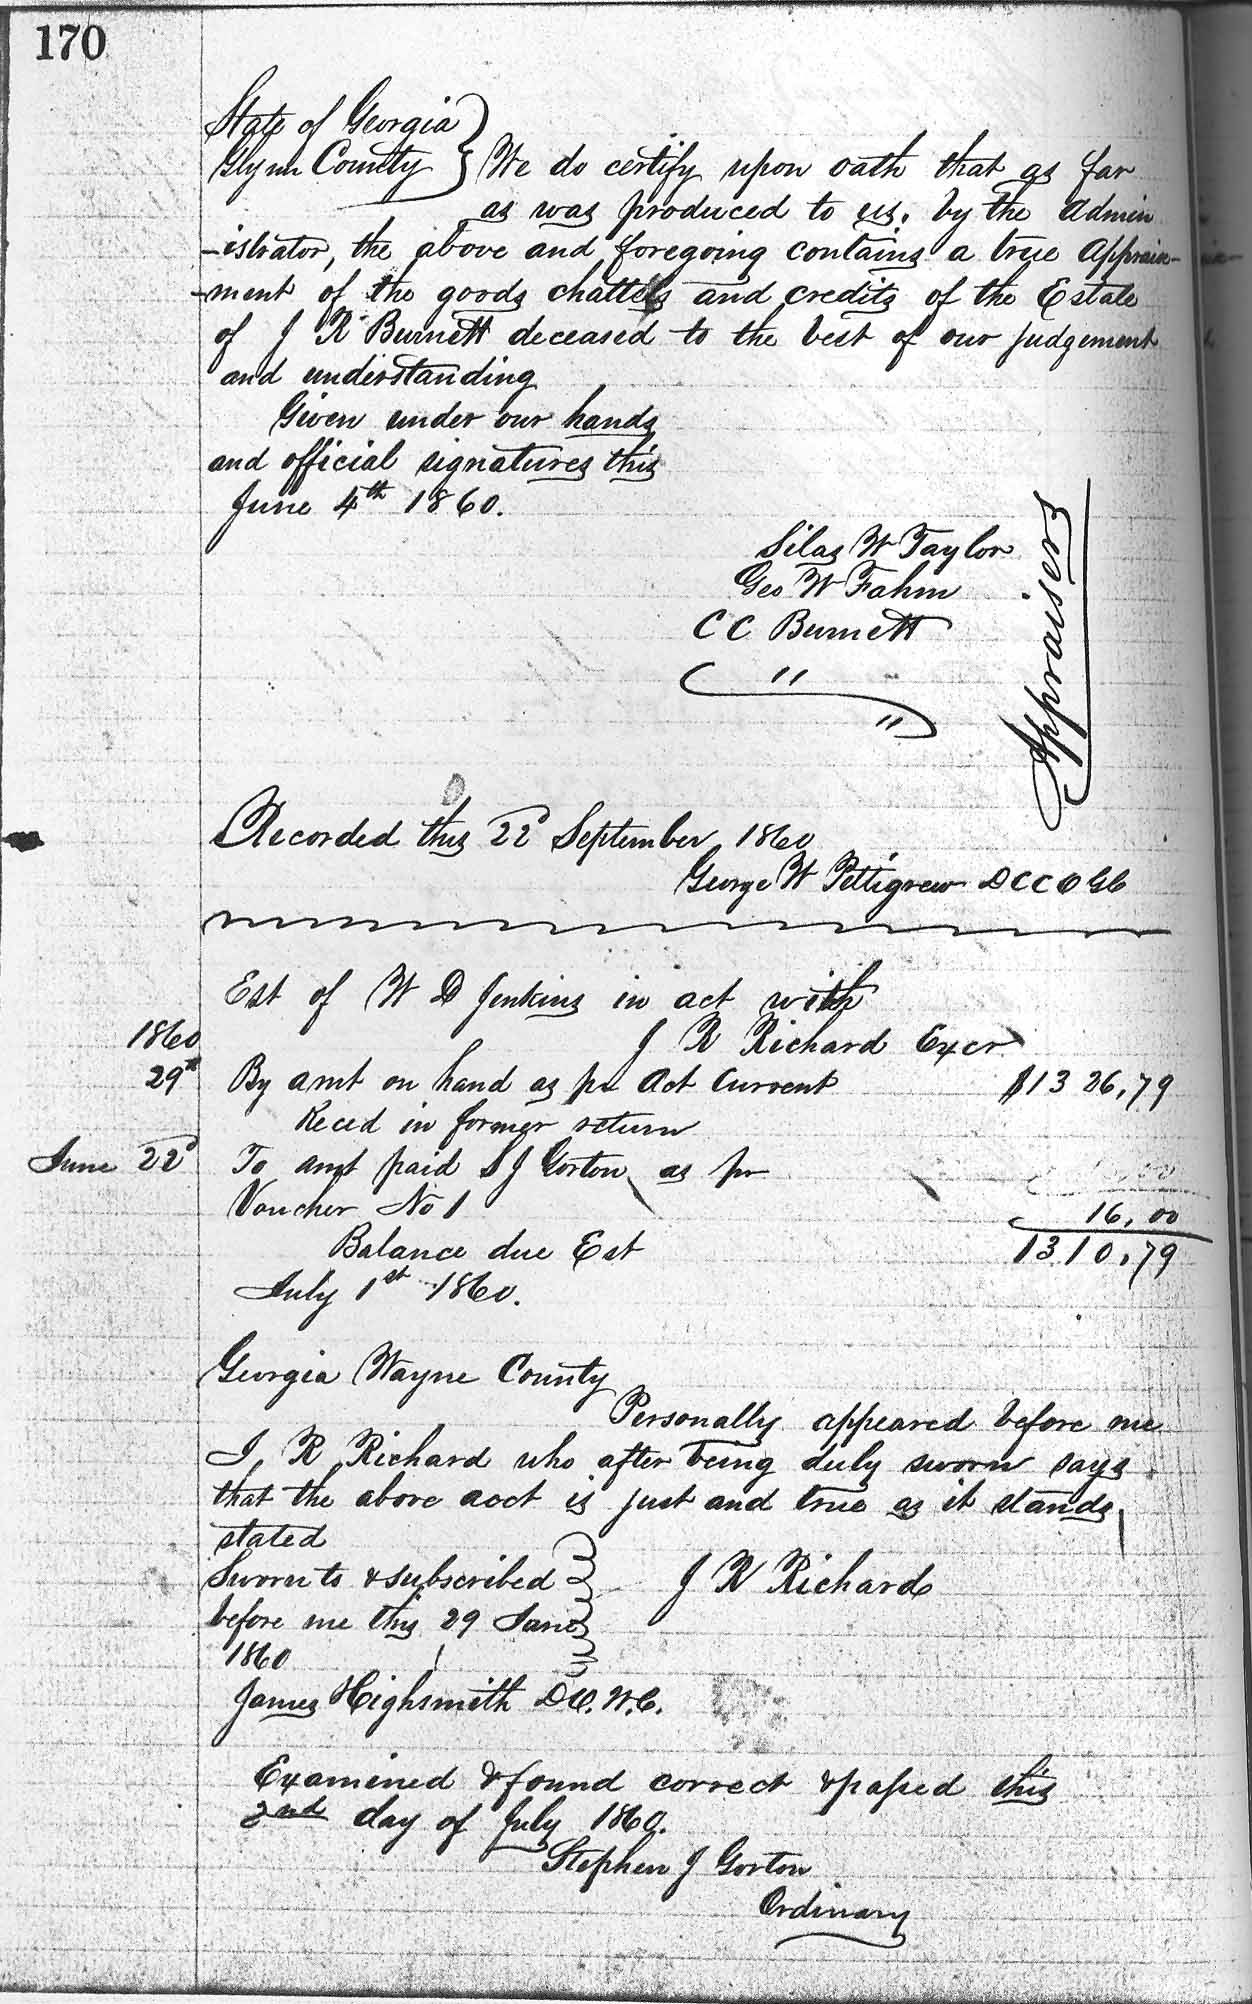 170
State of Georgia
Glynn County } We do certify upon oath that as far
as was produced to us. by the Admin
-istrator, the above and foregoing contains a true Appraise-
-ment of the goods chattels and credits of the Estate
of J R Burnett deceased to the best of our judgement
and understanding
Given under our hands
and official signatures this
June 4th 1860.
Silas W Taylor
Geo W Fahm
C C Burnett
" "
Appraisers
Recorded this 22d September 1860
George W Pettigrew D C C O G C
Est of W D Jenkins in act with
1860 J R Richard Excr
29th By amt on hand as pr Act Current $1326,79
Reced in former return
June 22d To amt paid S J Gorton as pr
Voucher No 1 16,00
Balance due Est 1310,79
July 1st 1860.
Georgia Wayne County
Personally appeared before me
J, R, Richard who after being duly sworn says
that the above acct is just and true as it stands
stated
Sworn to & subscribed J R Richard
before me this 29 June
1860
James Highsmith D C. W. C.
Examined & found correct & passed this
2nd day of July 1860.
Stephen J Gorton
Ordinary